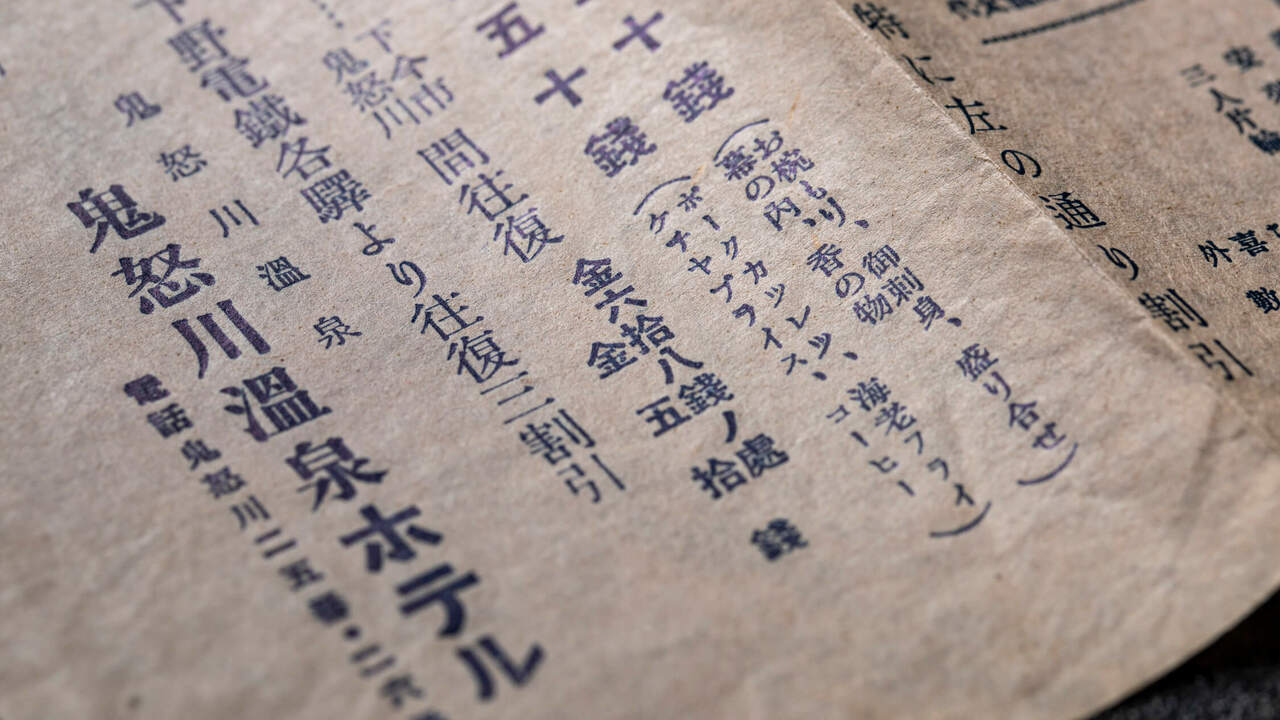 三人片輪
外喜
野
特に左の通り割引
十錢
お椀もり、御刺身、盛り合せ
幕の内、香の物、
五十錢
ポークカツレツ、海老フライ
ケチヤプライス、コーヒー
下今市
鬼怒川
間往復
金六拾八錢ノ處
金五拾錢
下野電鐵各驛より往復三割引
鬼怒川溫泉
鬼怒川溫泉ホテル
電話鬼怒川二五番・二六